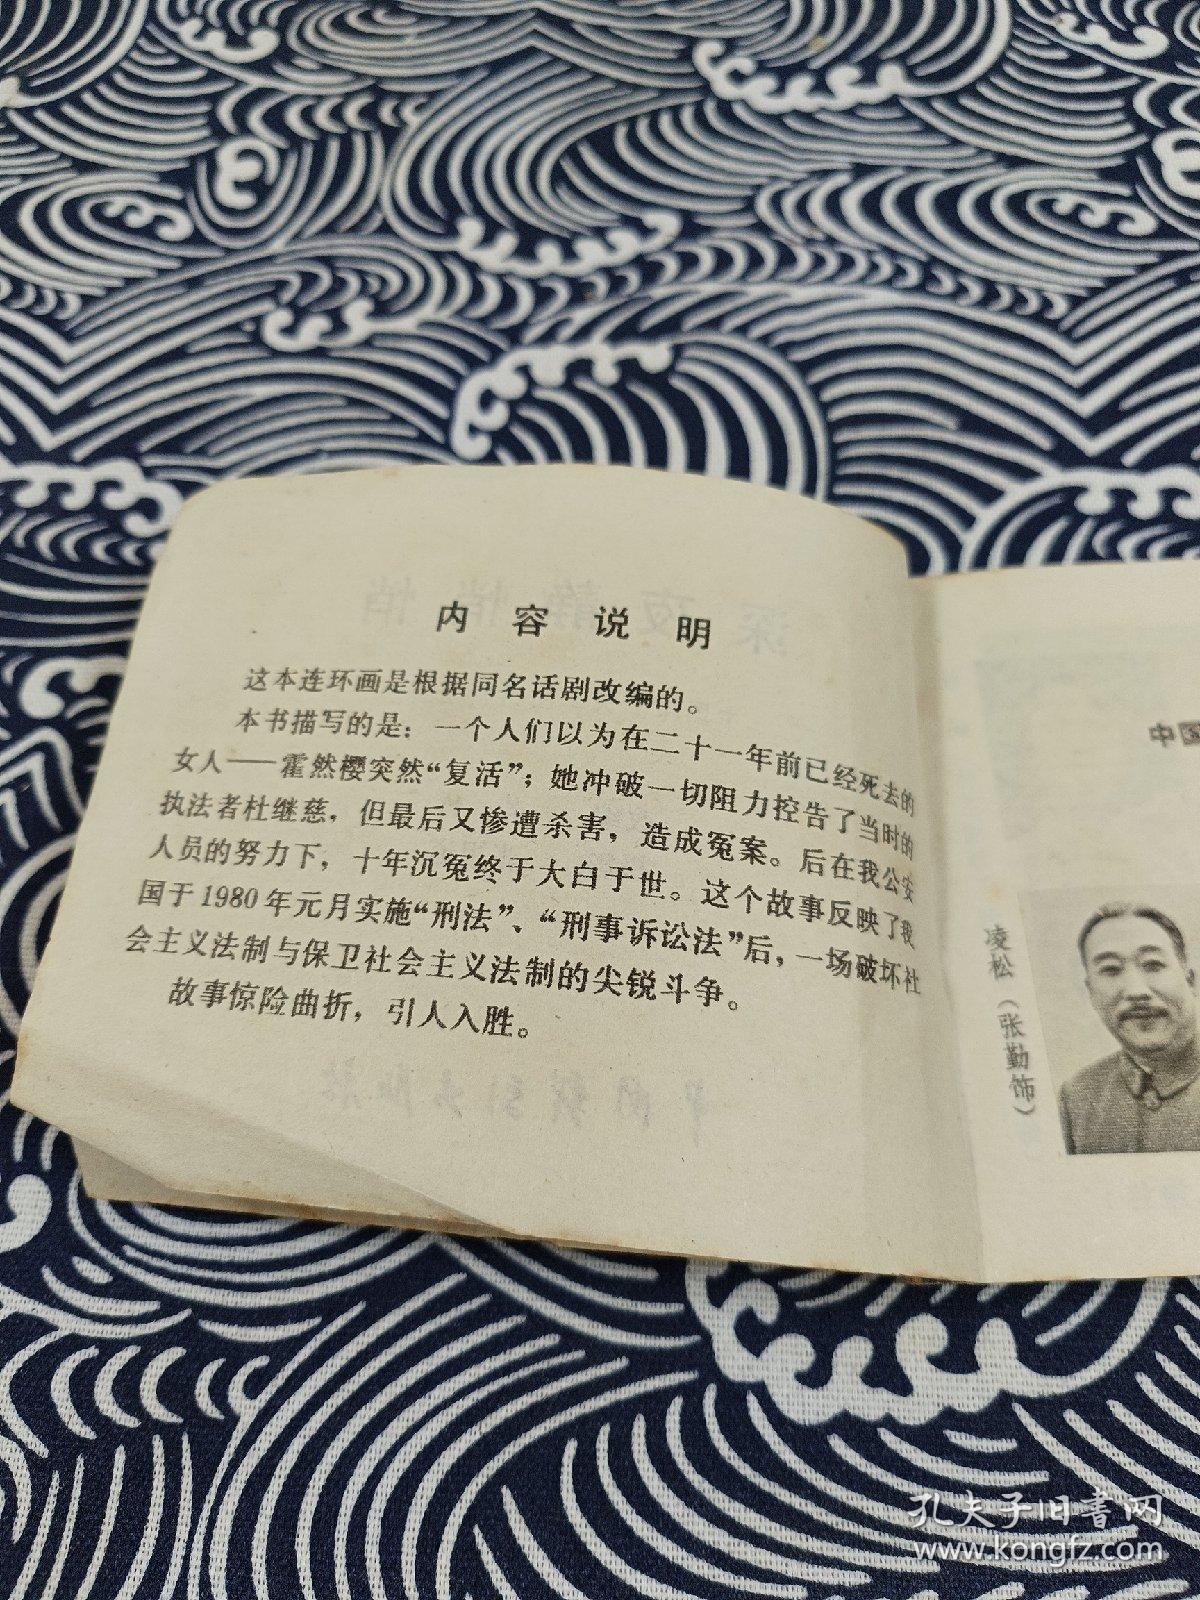 内容说明
这本连环画是根据同名话剧改编的。
本书描写的是：一个人们以为在二十一年前已经死去的
女人——霍然樱突然“复活”；她冲破一切阻力控告了当时的
执法者杜继慈，但最后又惨遭杀害，造成冤案。后在我公安
人员的努力下，十年沉冤终于大白于世。这个故事反映了我
国于1980年元月实施“刑法”、“刑事诉讼法”后，一场破坏社
会主义法制与保卫社会主义法制的尖锐斗争。
故事惊险曲折，引人入胜。
中国
凌松（张勤饰）
孔夫子旧书网
www.kongfz.com